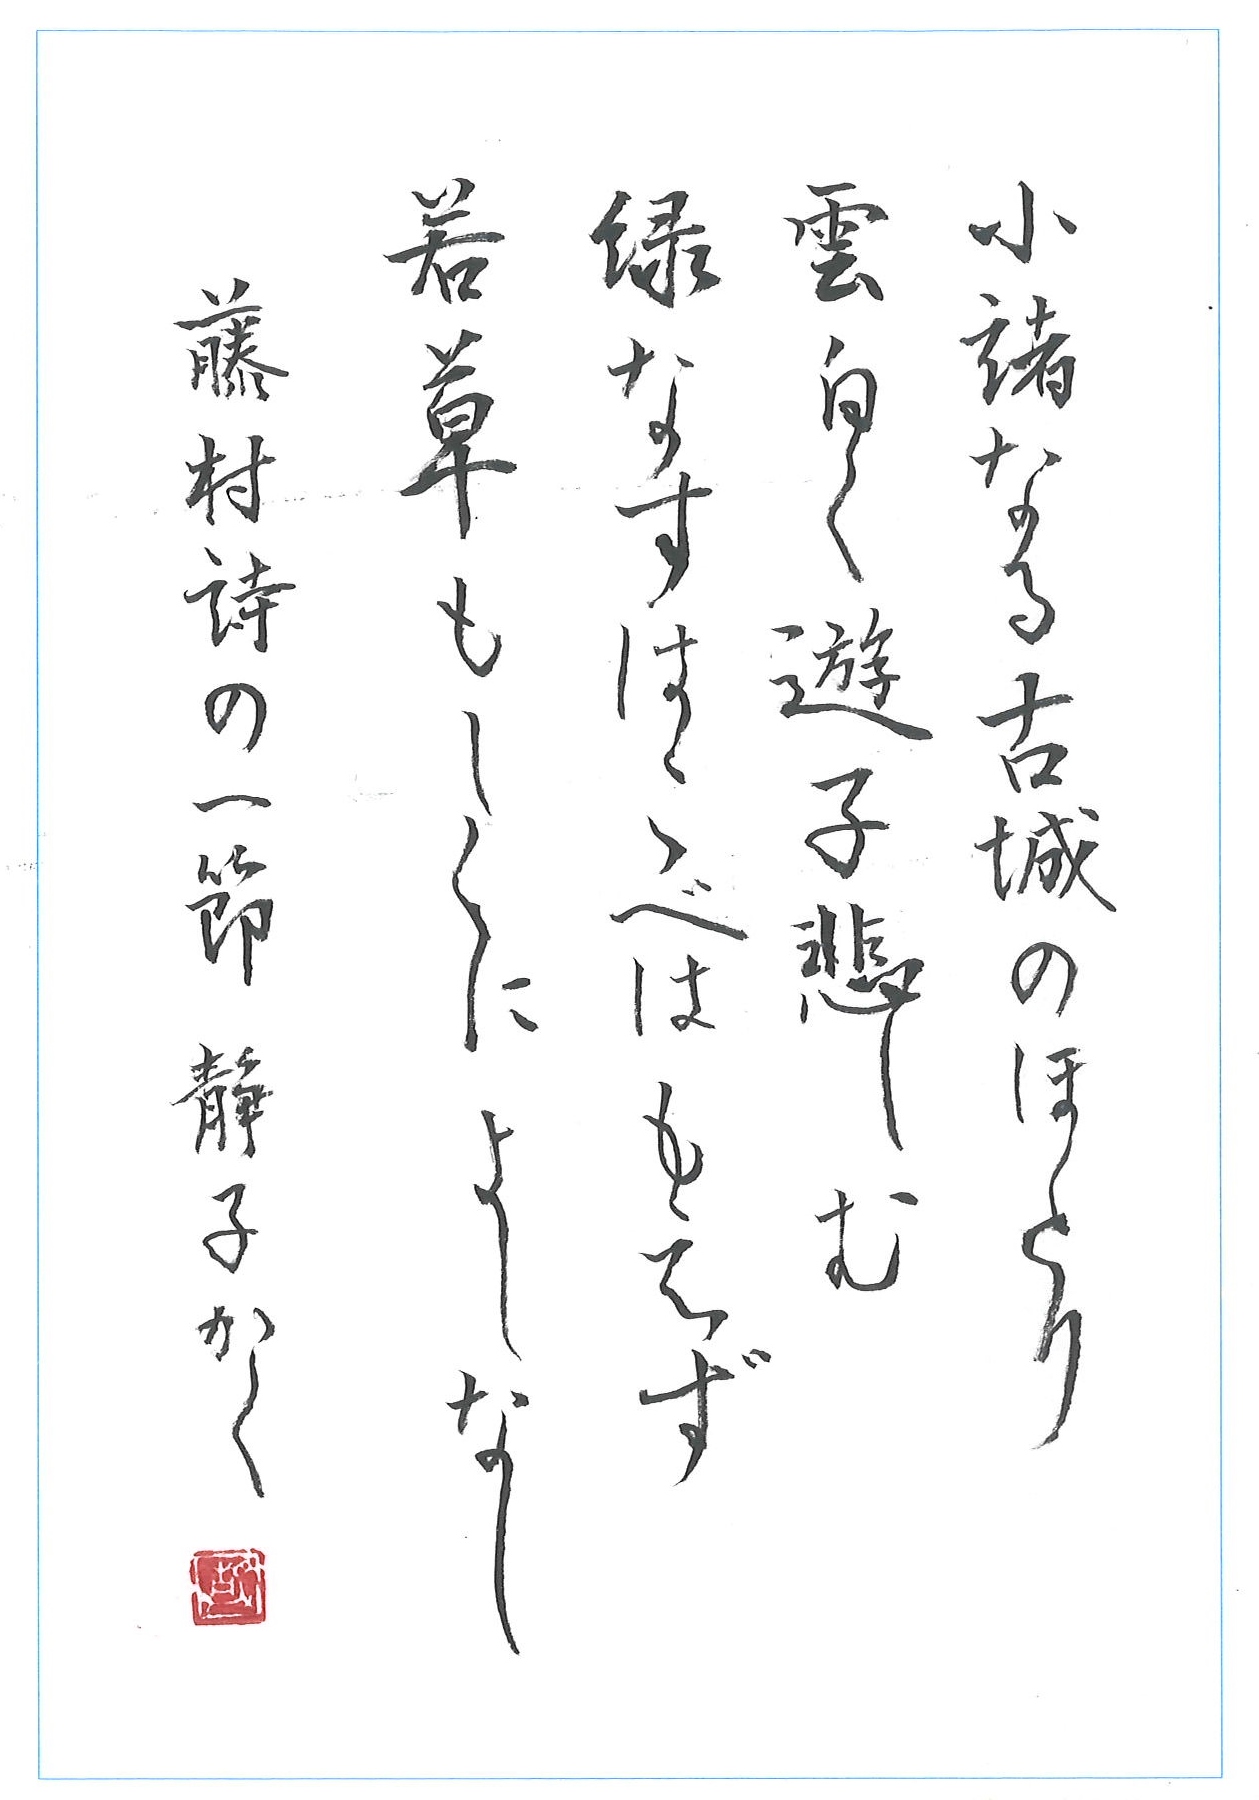 小諸なる古城のほとり
雲白く遊子悲しむ
緑なすはこべはもえず
若草もしくによしなし
藤村詩の一節 静子かく